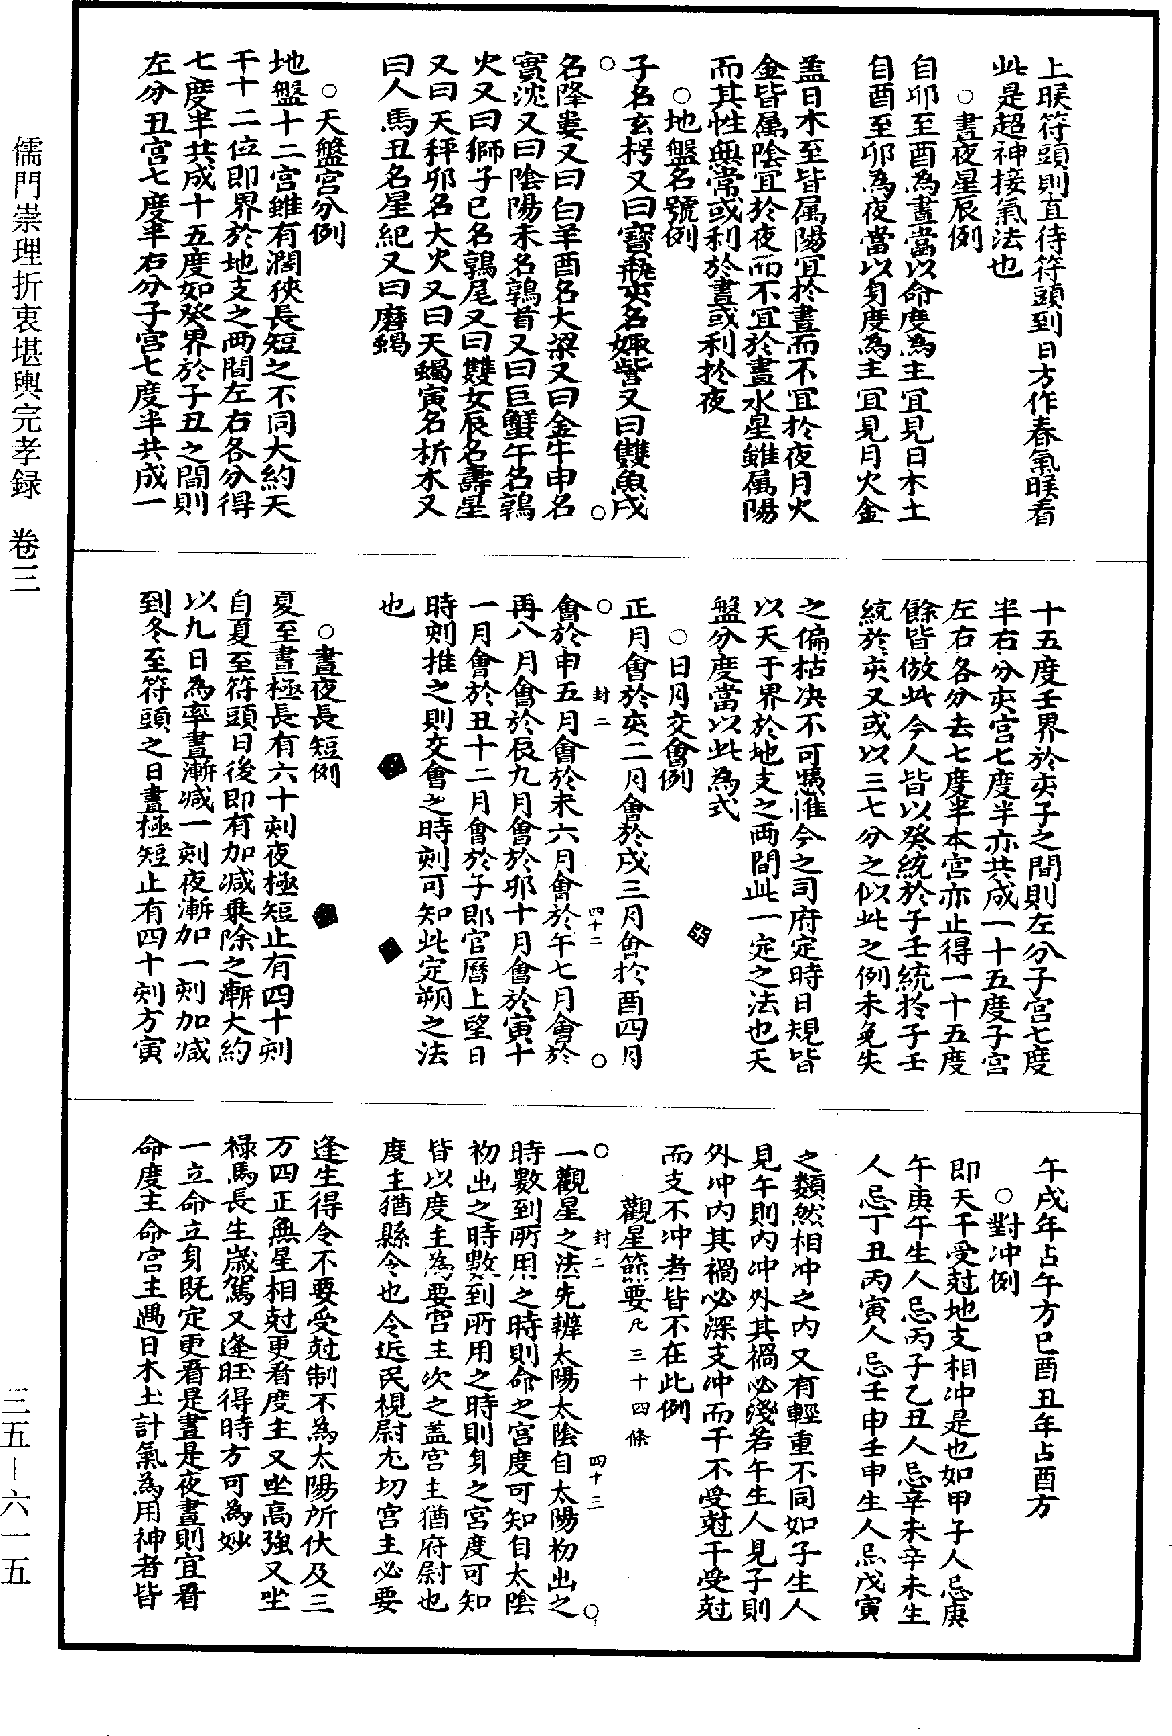 儒門崇理折衷堪輿完孝録　卷三
三五－六一五
上𦙍符頭則直待符頭到日方作春氣𦙍看
此是超神接氣法也
○晝夜星辰例
自卯至酉為晝當以命度為主宜見日木土
自酉至卯為夜當以身度為主宜見月火金
盖日木至皆属陽宜於晝而不宜於夜月火
金皆属陰宜於夜而不宜於晝水星雖属陽
而其性無常或利於晝或利於夜
○地盤名號例
子名玄枵又曰寶瓶亥名娵訾又曰雙魚戌
名降婁又曰白羊酉名大梁又曰金牛申名
實沈又曰陰陽未名鶉首又曰巨蟹午名鶉
火又曰獅子巳名鶉尾又曰雙女辰名壽星
又曰天秤卯名大火又曰天蝎寅名析木又
曰人馬丑名星紀又曰磨蝎
○天盤宮分例
地盤十二宮雖有濶狹長短之不同大約天
干十二位即界於地支之両間左右各分得
七度半共成十五度如癸界於子丑之間則
左分丑宮七度半右分子宮七度半共成一
十五度壬界於亥子之間則左分子宮七度
半右分亥宮七度半亦共成一十五度子宮
左右各分去七度半本宮亦止得一十五度
餘皆倣此今人皆以癸統於子壬統於子壬
統於亥又或以三七分之似此之例未免失
之偏枯决不可憑惟今之司府定時日規皆
以天于界於地支之両間此一定之法也天
盤分度當以此為式
○日月交會例
正月會於亥二月會於戌三月會於酉四月
封二
四十二
會於申五月會於未六月會於午七月會於
再八月會於辰九月會於卯十月會於寅十
一月會於丑十二月會於子即官曆上望日
時刻推之則交會之時刻可知此定朔之法
也
○晝夜長短例
夏至晝極長有六十刻夜極短止有四十刻
自夏至符頭日後即有加減乗除之漸大約
以九日為率晝漸減一刻夜漸加一刻加減
到冬至符頭之日晝極短止有四十刻方寅
午戌年占午方巳酉丑年占酉方
○對冲例
即天干受尅地支相冲是也如甲子人忌庚
午庚午生人忌丙子乙丑人忌辛未辛未生
人忌丁丑丙寅人忌壬申壬申生人忌戊寅
之類然相冲之内又有輕重不同如子生人
見午則内冲外其禍必淺若午生人見子則
外冲内其禍必深支冲而干不受尅干受尅
而支不冲者皆不在此例
觀星節要凡三十四條
封二
四十三
一觀星之法先辨太陽太陰自太陽初出之
時數到所用之時則命之宮度可知自太陰
初出之時數到所用之時則身之宮度可知
皆以度主為要宮主次之蓋宮主猶府尉也
度主猶縣令也令近民視尉尤切宮主必要
逢生得令不要受尅制不為太陽所伏及三
方四正無星相尅更看度主又坐高強又坐
禄馬長生歲駕又逢旺得時方可為妙
一立命立身既定更看是晝是夜晝則宜看
命度主命宮主遇日木土計氣為用神者皆